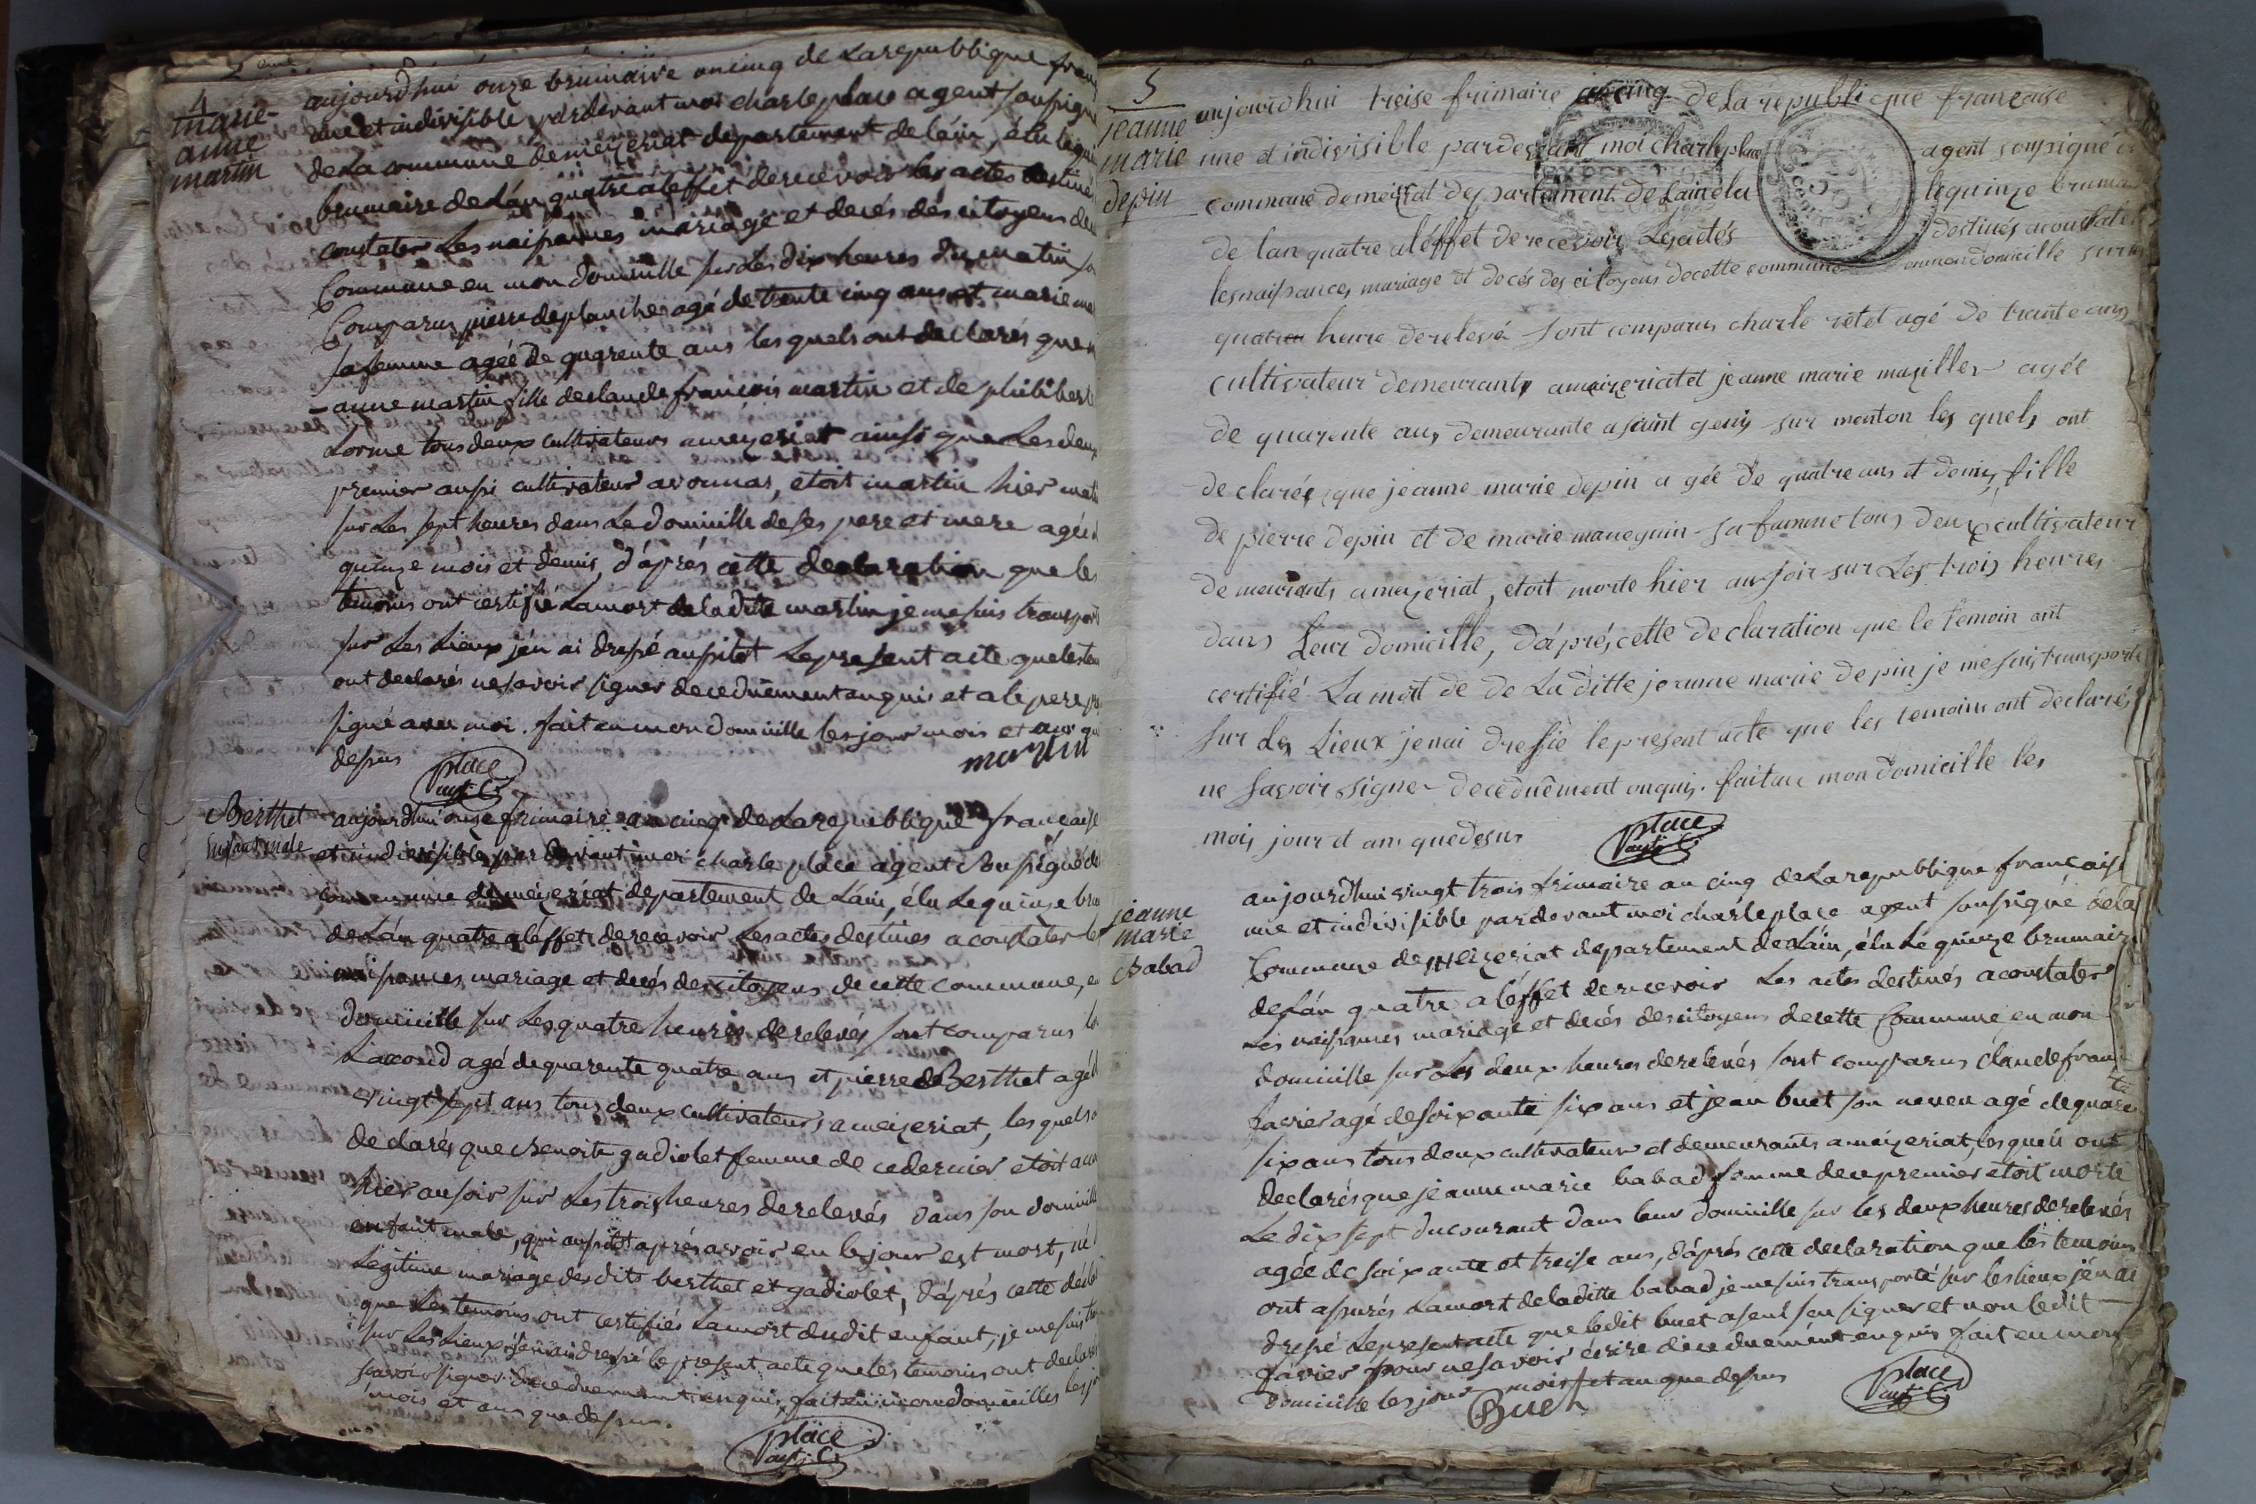 4
marie
anne
martin
aujourdhui onze brumaire an cinq de La republique fran
une et indivisible pardevant moi charle place agent soussign
de La commune de mezeriat departement de léin, élu le qui
brumaire de Lán quatre a leffet de recevoir les actes destine
constater Les naissances mariage et decés des citoyens de
Commune en mon domicille sur Les dix heures du matin so
Comparus pierre deplanche agé de trente cinq ans et marie
sa femme ageé de quarente ans les quels ont declarés que
- anne martin fille de claude francois martin et de philibert
Lorme tous deux cultivateurs a mezeriat ainsi que Les deux
premier aussi cultivateur a vonnas, etoit martin hier mat
sur Les sept heures dans Le domicille de ses pere et mere agée
quinze mois et demis, d'áprés cette declaration que les
temoins ont certifié La mort de la ditte martin je me suis transport
sur Les Lieux jén ai dressé aussitot Le present acte que les tem
ont declarés ne savoir signer de ce duëment enquis et a le pere
signé avec moi. fait en mon domicille les jour mois et an qu
desus
martin
place
agt. C.
Berthet
enfant male
aujourdhui onze frimaire an cinq de La republique française
et indivisible par devant moi charle place agent Soussigné de
commune de meizeriat departement de Láin, élu Le quinze bru
de Lán quatre a léffet de recevoir Les actes destines a constater le
naissances mariage et decés des citoyens de cette commune, en
domicille sur Les quatre heures de relevés sont comparus
Lacond agé de quarente quatre ans et pierre de Berthet agé d
vingt sept ans tous deux cultivateurs a meizeriat, les quels o
declarés que Benoite gadiolet femme de ce dernier etoit acc
hier au soir sur Les trois heures de relevés dans son domicille
enfant male, qui aussitot aprés avoir eu le jour est mort, né
Légitime mariage des dits berthet et gadiolet, d'áprés cette décla
que Les temoins ont certifiés La mort du dit enfant, je me suis tr
sur Les Lieux j'én ai dressé le present acte que les temoins ont declaré
savoir signer de ce duement enquis, fait en mon domicilles les jo
mois et ans que dessus.
place
agt. C.
5
jeanne
marie
depin
aujourdhui treise frimaire an cinq de La republique française
une et indivisible pardevant moi charle place agent soussigné
commune de meizeriat departement de Lain elu le quinze brumai
de lan quatre a léffet de recevoir Les actes destinés a constater
les naissances mariage et decés des citoyens de cette commune en mon domicille sur
quatre heure de relevé sont comparus charle retet agé de trante ans
cultivateur demeurant a maizeriat et jeanne marie mazillier agée
de quarente ans demeurante a saint genis sur menton les quels ont
declarés que jeanne marie depin agée de quatre ans et demis, fille
de pierre depin et de marie maneguin sa famme tous deux cultivateur
demeurants a mezériat, etoit morte hier au soir sur Les trois heures
dans Leur domicille, d'áprés cette declaration que le temoin ont
certifié La mort de de La ditte jeanne marie depin je me suis transporté
sur les Lieux jenai dressé le present acte que les temoins ont declarés
ne savoir signer de ce duêment enquis. fait au mon domicille les
mois jour et ans que desus
place
agt. C.
jeanne
marie
Babad
aujourdhui vingt trois frimaire an cinq de La republique français
une et indivisible pardevant moi charle place agent soussigné de la
Commune de meizeriat departement de Láin, élu Le quinze brumaire
de Lán quatre a léffet de recevoir Les actes destinés a constater
Les naissances mariage et decés des citoyens de cette Commune en mon
domicille sur Les deux heures de relevés sont comparus claude fran
favier agé de soixante six ans et jean buet son neveu agé de quaren
te
six ans tous deux cultivateur et demeurants a meizeriat, les quels ont
declarés que jeanne marie babad femme de ce premier etoit morte
Le dix sept du courant dans leur domicille sur les deux heures de relevés
agée de soixante et treise ans, d'áprés cette declaration que les temoins
ont assurés La mort de la ditte babad je me suis transporté sur les lieux jén ai
dressé Le present acte que le dit buet a seul seu signer et non le dit
favier pour ne savoir écrire de ce duement enquis fait en mon
domicille les jour mois et an que dessus
Buet
place
agt. C.